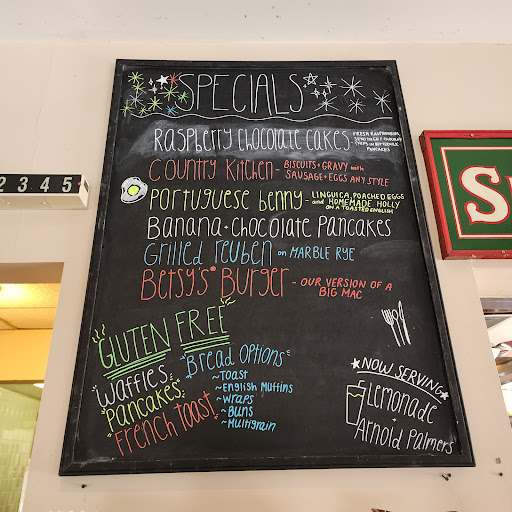 SPECIALS
Raspberry Chocolate Cakes - FRESH RASPBERRIES
SEMI SWEET CHOCOLATE
CHIPS IN BUTTERMILK
PANCAKES
Country Kitchen - BISCUITS + GRAVY with
SAUSAGE + EGGS ANY STYLE
Portuguese Benny - LINGUICA, POACHED EGGS
and HOMEMADE HOLLY
ON A TOASTED ENGLISH
Banana + Chocolate Pancakes
Grilled Reuben on MARBLE RYE
Betsy's Burger - OUR VERSION OF A
BIG MAC
GLUTEN FREE
Waffles
Pancakes
French Toast
Bread Options
~Toast
~English Muffins
~Wraps
~Buns
~Multigrain
NOW SERVING
Lemonade
+
Arnold Palmers
2345
S